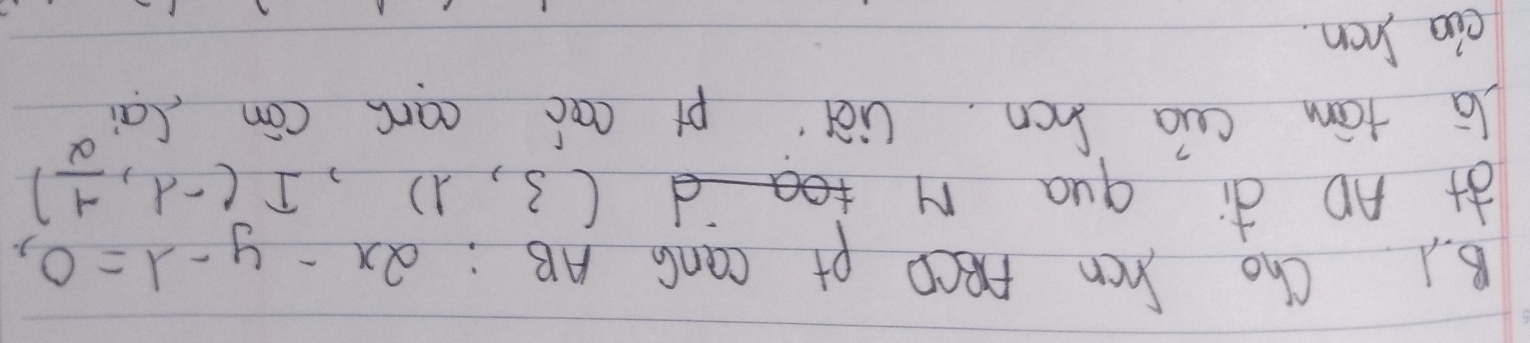 B.1 Cho hcn ABCD pt cạnh AB : 2x - y - 1 = 0,
đt AD đi qua M toạ đ (3, 1), I (-1, 1/2)
là tâm của hcn. Viết pt các cạnh còn lại
của hcn.